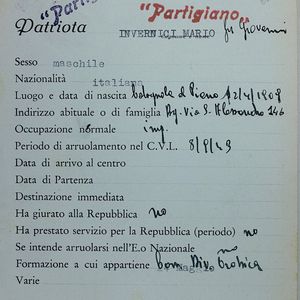 "Partigiano"
Patriota INVERNICI MARIO fu Giovanni
Sesso maschile
Nazionalità italiana
Luogo e data di nascita Bolognola al Piano 12/4/1909
Indirizzo abituale o di famiglia Bg. Via S. Alessandro 146
Occupazione normale imp.
Periodo di arruolamento nel C.V.L. 8/9/43
Data di arrivo al centro
Data di Partenza
Destinazione immediata
Ha giurato alla Repubblica no
Ha prestato servizio per la Repubblica (periodo) no
Se intende arruolarsi nell'E.o Nazionale no
Formazione a cui appartiene Com. Div. Orobica
Varie